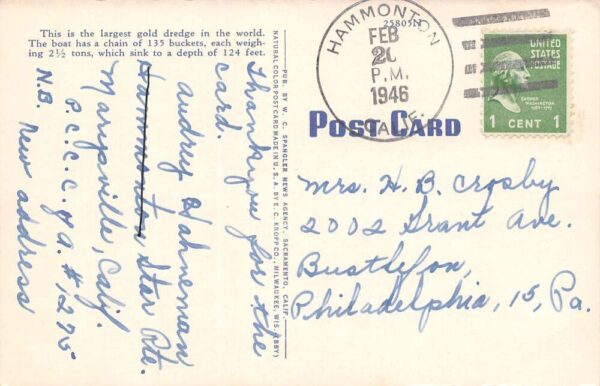 This is the largest gold dredge in the world.
The boat has a chain of 135 buckets, each weigh-
ing 2½ tons, which sink to a depth of 124 feet.
25805N
HAMMONTON
FEB
20
P.M.
1946
CALIF.
UNITED
STATES
POSTAGE
GEORGE
WASHINGTON
1789-1797
1 CENT 1
POST CARD
PUB. BY W. C. SPANGLER NEWS AGENCY, SACRAMENTO, CALIF.
NATURAL COLOR POST CARD MADE IN U. S. A. BY E. C. KROPP CO., MILWAUKEE, WIS. (BBY)
Thankyou for the
card.
Audrey Hahneman
Hammonton, Star Rte.
Marysville, Calif.
P.C.C. of A. #1275
N.B. New address
Mrs. H. B. Crosby
2002 Grant Ave.
Bustleton,
Philadelphia, 15, Pa.